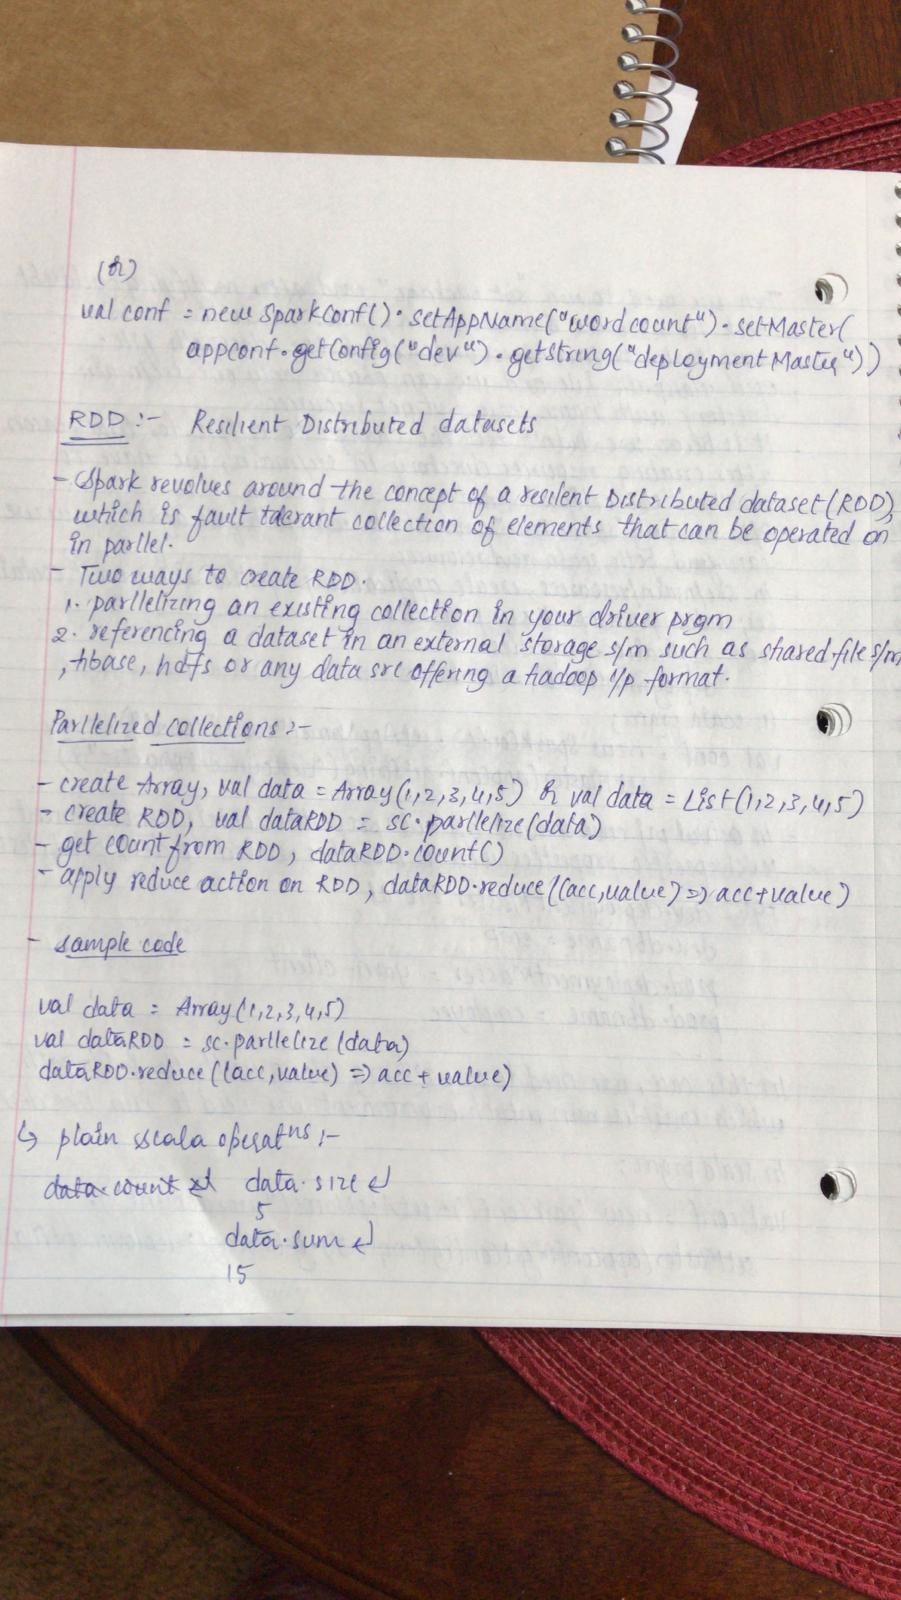 (or)
val conf = new SparkConf().setAppName("word count").setMaster(
appconf.getConfig("dev").getString("deploymentMaster"))
RDD :- Resilient Distributed datasets
- Spark revolves around the concept of a resilent Distributed dataset (RDD),
which is fault tolerant collection of elements that can be operated on
in parllel.
- Two ways to create RDD.
1. parllelizing an existing collection in your driver prgm
2. referencing a dataset in an external storage s/m such as shared file s/m
, hbase, hdfs or any data src offering a hadoop i/p format.
Parllelized collections :-
- create Array, val data = Array(1,2,3,4,5) or val data = List(1,2,3,4,5)
- create RDD, val dataRDD = sc.parllelize(data)
- get count from RDD, dataRDD.count()
- apply reduce action on RDD, dataRDD.reduce((acc,value) => acc+value)
- sample code
val data = Array(1,2,3,4,5)
val dataRDD = sc.parllelize(data)
dataRDD.reduce((acc,value) => acc + value)
↳ plain scala operatns :-
data.count ↵ data.size ↵
5
data.sum ↵
15